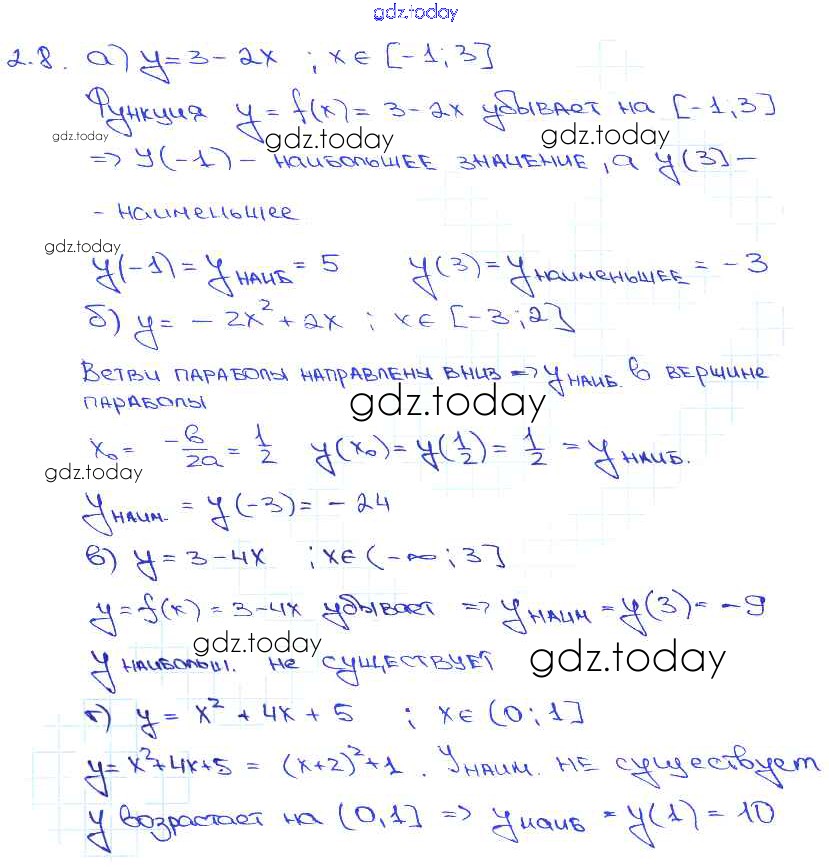 gdz.today
2.8. а) y = 3 - 2x ; x ∈ [-1; 3]
Функция y = f(x) = 3 - 2x убывает на [-1, 3]
gdz.today
gdz.today
=> y(-1) - наибольшее значение, а y(3) -
- наименьшее
gdz.today
y(-1) = y наиб = 5 y(3) = y наименьшее = -3
б) y = -2x² + 2x ; x ∈ [-3; 2]
Ветви параболы направлены вниз => y наиб. в вершине
параболы
gdz.today
x₀ = -в/2a = 1/2 y(x₀) = y(1/2) = 1/2 = y наиб.
gdz.today
y наим. = y(-3) = -24
в) y = 3 - 4x ; x ∈ (-∞; 3]
y = f(x) = 3 - 4x убывает => y наим = y(3) = -9
gdz.today
y наибольш. не существует
gdz.today
г) y = x² + 4x + 5 ; x ∈ (0; 1]
y = x² + 4x + 5 = (x+2)² + 1. y наим. не существует
y возрастает на (0, 1] => y наиб = y(1) = 10